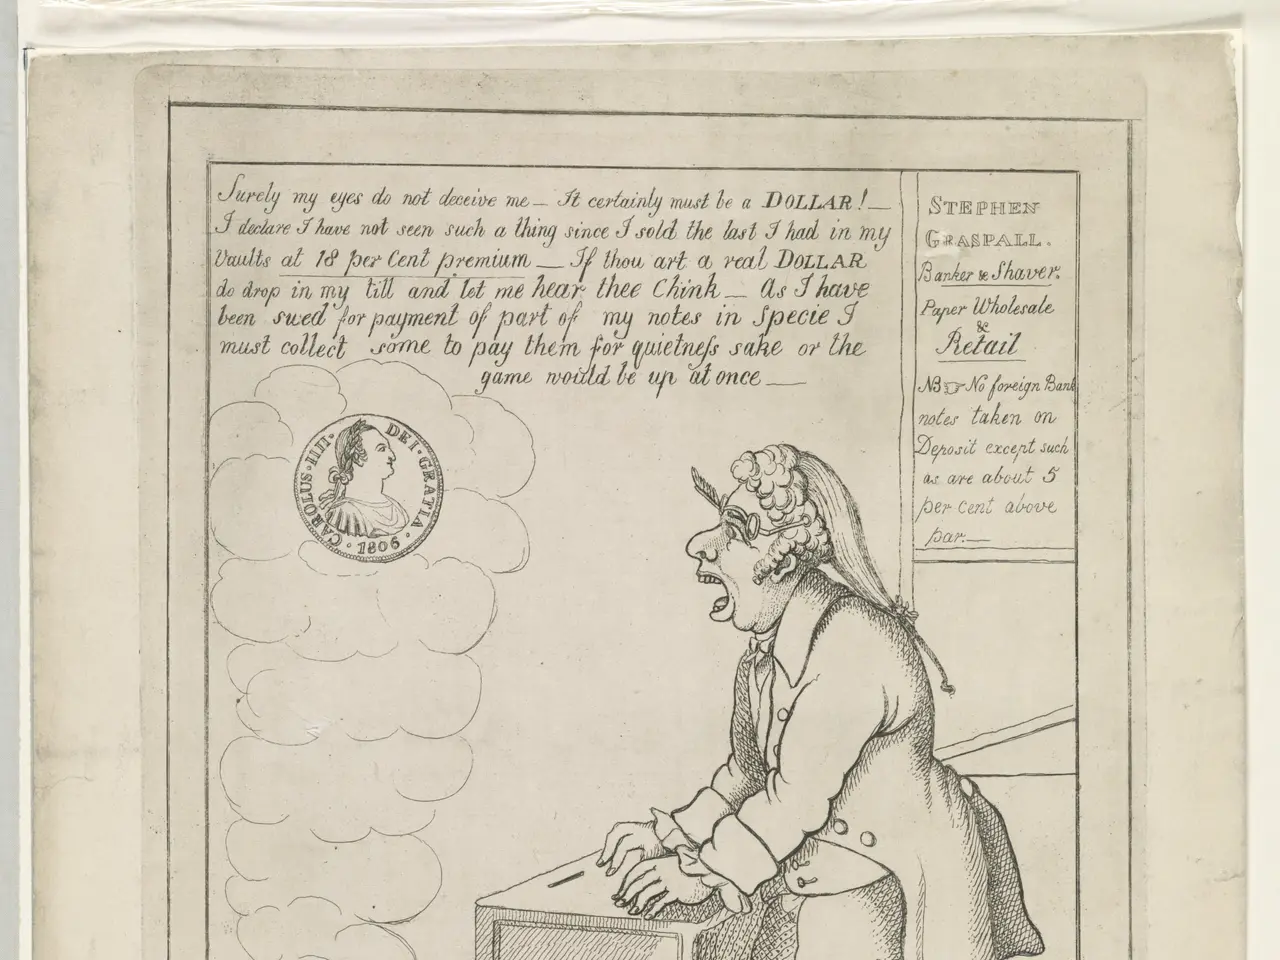 Surely my eyes do not deceive me — It certainly must be a DOLLAR! —
I declare I have not seen such a thing since I sold the last I had in my
Vaults at 18 per Cent premium — If thou art a real DOLLAR
do drop in my till and let me hear thee Chink — As I have
been sued for payment of part of my notes in Specie I
must collect some to pay them for quietneſs sake or the
game would be up at once —
CAROLUS·IIII· DEI·GRATIA·
·1806·
STEPHEN
GRASPALL.
Banker & Shaver.
Paper Wholesale
&
Retail
NB☞ No foreign Bank
notes taken on
Deposit except such
as are about 5
per Cent above
par.—